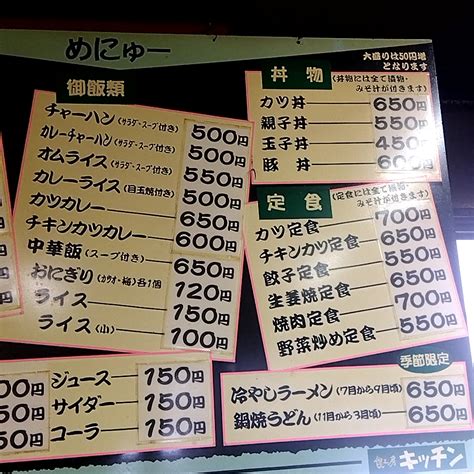 めにゅー
大盛りは50円増
となります
御飯類
チャーハン(サラダ・スープ付き) 500円
カレーチャーハン(サラダ・スープ付き) 500円
オムライス(サラダ・スープ付き) 550円
カレーライス(目玉焼付き) 500円
カツカレー 650円
チキンカツカレー 600円
中華飯(スープ付き) 650円
おにぎり(カツオ・梅)各1個 120円
ライス 150円
ライス(小) 100円
丼物
(丼物には全て漬物・
みそ汁が付きます)
カツ丼 650円
親子丼 550円
玉子丼 450円
豚丼 600円
定食
(定食には全て漬物・
みそ汁が付きます)
カツ定食 700円
チキンカツ定食 650円
餃子定食 550円
生姜焼定食 650円
焼肉定食 700円
野菜炒め定食 550円
00円
50円
50円
ジュース 150円
サイダー 150円
コーラ 150円
季節限定
冷やしラーメン(7月から9月頃) 650円
鍋焼うどん(11月から3月頃) 650円
キッチン